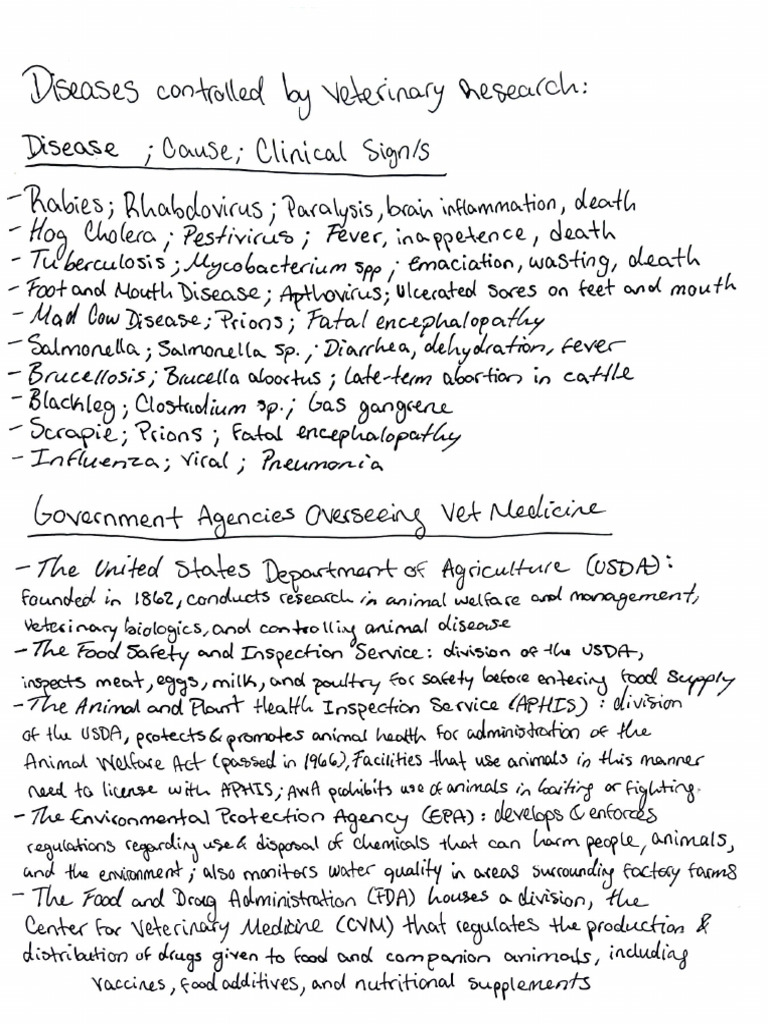 Diseases controlled by Veterinary Research:
Disease ; Cause; Clinical Sign/s
- Rabies; Rhabdovirus; Paralysis, brain inflammation, death
- Hog Cholera; Pestivirus; Fever, inappetence, death
- Tuberculosis; Mycobacterium spp; emaciation, wasting, death
- Foot and Mouth Disease; Apthovirus; Ulcerated sores on feet and mouth
- Mad Cow Disease; Prions; Fatal encephalopathy
- Salmonella; Salmonella sp.; Diarrhea, dehydration, fever
- Brucellosis; Brucella abortus; late-term abortion in cattle
- Blackleg; Clostridium sp.; Gas gangrene
- Scrapie; Prions; Fatal encephalopathy
- Influenza; viral; Pneumonia
Government Agencies Overseeing Vet Medicine
- The United States Department of Agriculture (USDA):
founded in 1862, conducts research in animal welfare and management,
veterinary biologics, and controlling animal disease
- The Food Safety and Inspection Service: division of the USDA,
inspects meat, eggs, milk, and poultry for safety before entering food supply
- The Animal and Plant Health Inspection Service (APHIS): division
of the USDA, protects & promotes animal health for administration of the
Animal Welfare Act (passed in 1966), Facilities that use animals in this manner
need to license with APHIS; AWA prohibits use of animals in baiting or fighting.
- The Environmental Protection Agency (EPA): develops & enforces
regulations regarding use & disposal of chemicals that can harm people, animals,
and the environment; also monitors water quality in areas surrounding factory farms
- The Food and Drug Administration (FDA) houses a division, the
Center for Veterinary Medicine (CVM) that regulates the production &
distribution of drugs given to food and companion animals, including
vaccines, food additives, and nutritional supplements